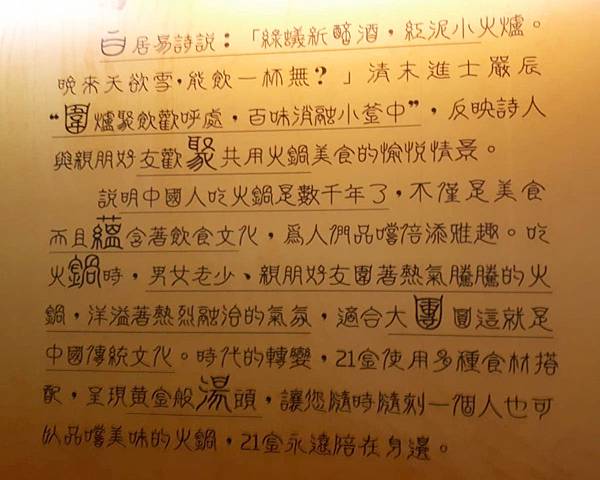 白居易詩說：「綠蟻新醅酒，紅泥小火爐。
晚來天欲雪，能飲一杯無？」清末進士嚴辰
“圍爐聚飲歡呼處，百味消融小釜中”，反映詩人
與親朋好友歡聚共用火鍋美食的愉悅情景。
說明中國人吃火鍋是數千年了，不僅是美食
而且蘊含著飲食文化，為人們品嚐倍添雅趣。吃
火鍋時，男女老少、親朋好友圍著熱氣騰騰的火
鍋，洋溢著熱烈融洽的氣氛，適合大團圓這就是
中國傳統文化。時代的轉變，21室使用多種食材搭
配，呈現黃室般湯頭，讓您隨時隨刻一個人也可
以品嚐美味的火鍋，21室永遠陪在身邊。